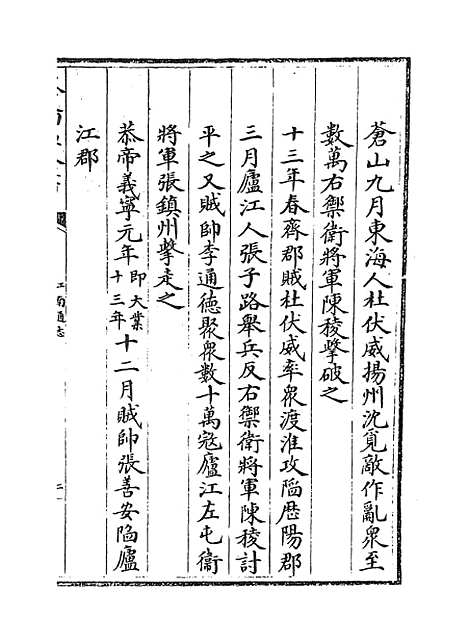 蒼山九月東海人杜伏威揚州沈覓敵作亂衆至
數萬右禦衛將軍陳稜擊破之
十三年春齊郡賊杜伏威率衆渡淮攻陷歴陽郡
三月廬江人張子路舉兵反右禦衛將軍陳稜討
平之又賊帥李通德聚衆數十萬寇廬江左屯衞
將軍張鎮州擊走之
恭帝義寧元年即大業十三年十二月賊帥張善安陷廬
江郡
江南通志